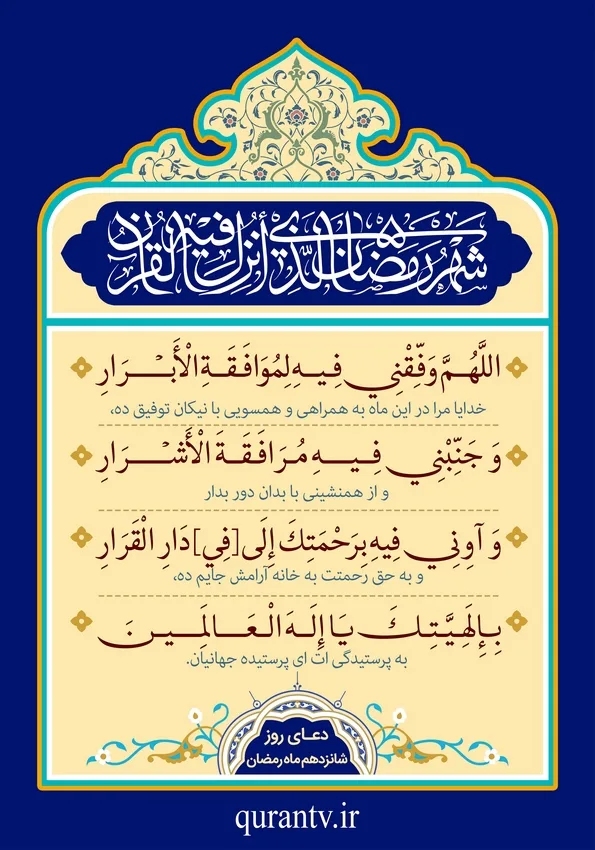 شَهْرُ رَمَضَانَ الَّذِي أُنْزِلَ فِيهِ الْقُرْآنُ
اللَّهُمَّ وَفِّقْنِي فِيهِ لِمُوَافَقَةِ الْأَبْرَارِ
خدایا مرا در این ماه به همراهی و همسویی با نیکان توفیق ده،
وَ جَنِّبْنِي فِيهِ مُرَافَقَةَ الْأَشْرَارِ
و از همنشینی با بدان دور بدار
وَ آوِنِي فِيهِ بِرَحْمَتِكَ إِلَى [فِي] دَارِ الْقَرَارِ
و به حق رحمتت به خانه آرامش جایم ده،
بِإِلَهِيَّتِكَ يَا إِلَهَ الْعَالَمِينَ
به پرستیدگی ات ای پرستیده جهانیان.
دعای روز
شانزدهم ماه رمضان
qurantv.ir